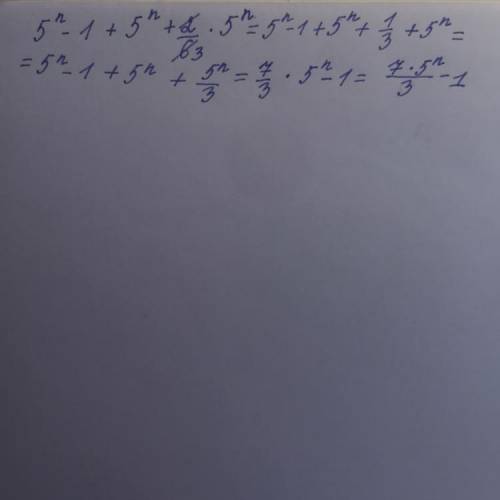 5ⁿ - 1 + 5ⁿ + 2/6 3 · 5ⁿ = 5ⁿ - 1 + 5ⁿ + 1/3 + 5ⁿ =
= 5ⁿ - 1 + 5ⁿ + 5ⁿ/3 = 7/3 · 5ⁿ - 1 = 7·5ⁿ/3 - 1